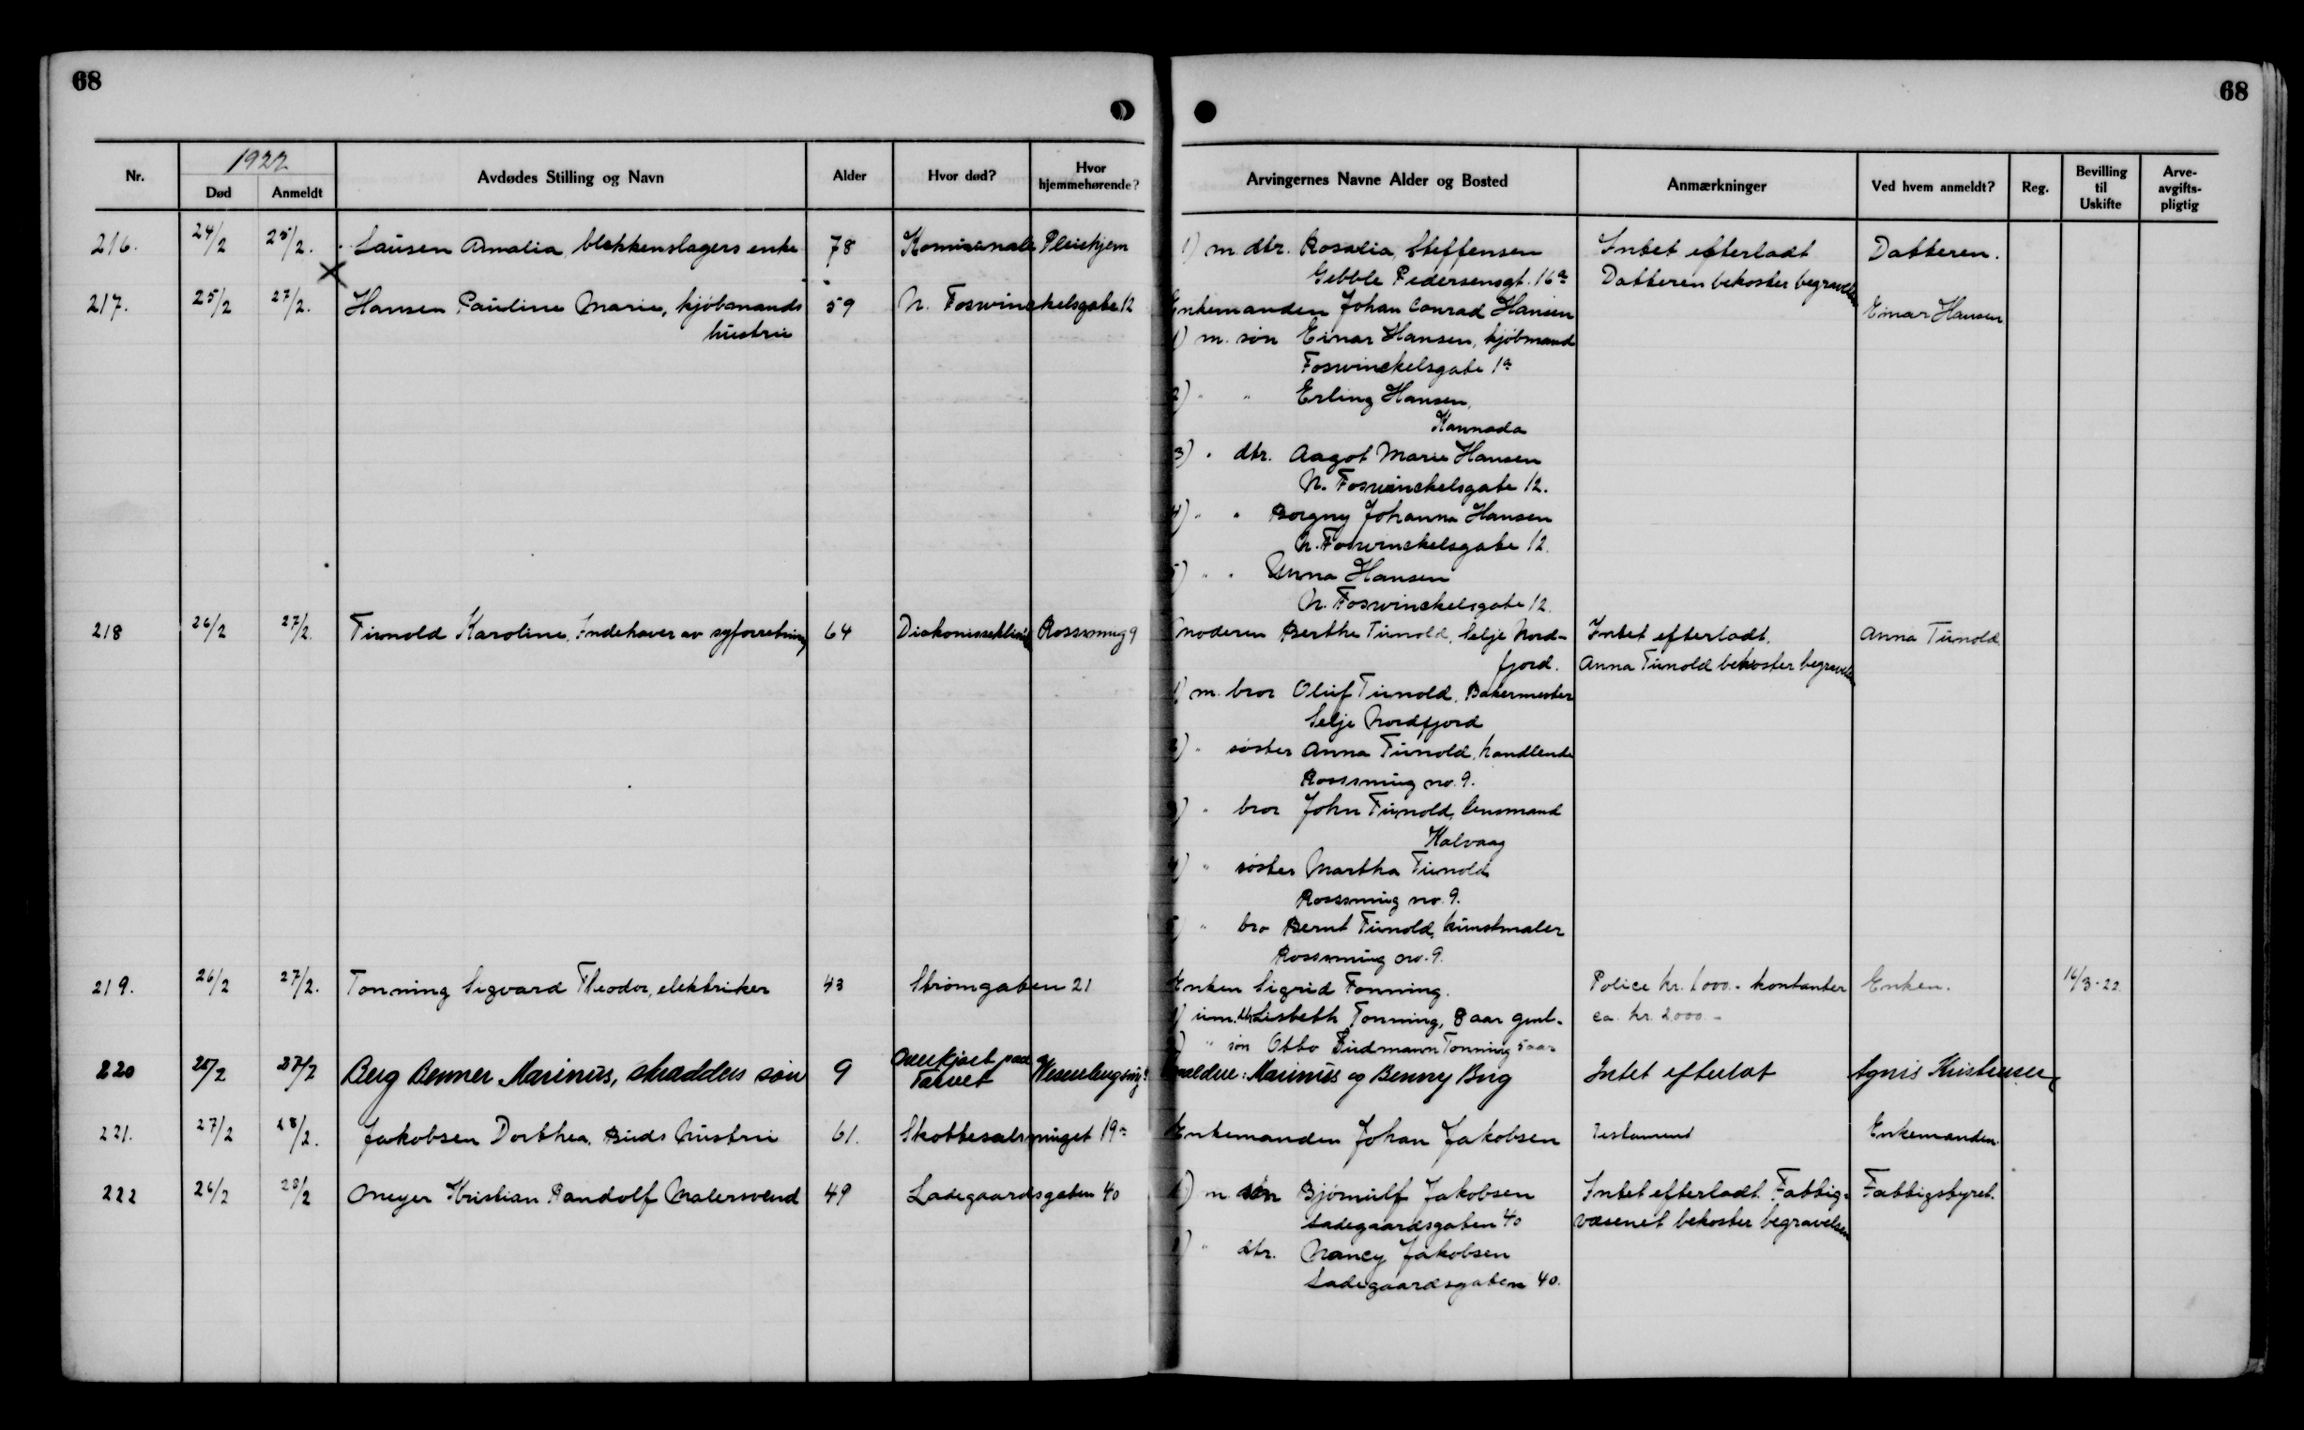 68
68
1922
Nr.
Død
Anmeldt
Avdødes Stilling og Navn
Alder
Hvor død?
Hvor hjemmehørende?
Arvingernes Navne Alder og Bosted
Anmærkninger
Ved hvem anmeldt?
Reg.
Bevilling til Uskifte
Arve-avgifts-pligtig
216. 24/2 25/2. Lausen Amalia, blekkenslagers enke 78 Komunale Pleiehjem 1) m. dtr. Rosalia, Steffensen Intet efterladt Datteren.
Gebble Pedersensgt. 16a Datteren bekoster begravelsen
217. 25/2 27/2. Hansen Pauline Marie, kjøbmands 59 N. Foswinckelsgate 12 Enkemanden Johan Conrad Hansen Einar Hansen
hustru 1) m. søn Einar Hansen, kjøbmand
Foswinckelsgate 1a
2) " " Erling Hansen,
Kannada
3) " dtr. Aagot Marie Hansen
N. Foswinckelsgate 12.
4) " " Borgny Johanna Hansen
N. Foswinckelsgate 12.
5) " " Unna Hansen
N. Foswinckelsgate 12.
218 26/2 27/2. Tunold Karoline, Indehaver av syforretning 64 Rossmug 9 Moderen Berthe Tunold, Selje Nord- Intet efterladt. Anna Tunold
fjord. Anna Tunold bekoster begravelsen
1) m. bror Oluf Tunold, Bakermester
Selje Nordfjord
2) " søster Anna Tunold, handlende
Rossmug no. 9.
3) " bror John Tunold, lensmand
Kalvaag
4) " søster Martha Tunold
Rossmug no. 9.
5) " bro Bernt Tunold, kunstmaler
Rossmug no. 9.
219. 26/2 27/2. Tonning Sigvard Theodor, elektriker 43 Strømgaten 21 Enken Sigrid Tonning. Police kr. 1000.- kontanter Enken. 16/3-22.
1) um. dtr. Lisbeth Tonning, 8 aar gml. ca. kr. 2000.-
2) " søn Otto Tonning 5 aar
220 25/2 27/2 Berg Benner Marinus, skædders søn 9 Overkjørt paa
Torvet Forældre: Marinus og Benny Berg Intet efterlat Agnes Kristensen
221. 27/2 28/2. Jakobsen Dorthea, Buds hustru 61. Skottesalsmuget 19a Enkemanden Johan Jakobsen Testament Enkemanden.
222 26/2 28/2 Meyer Kristian Randolf Malersvend 49 Ladegaardsgaten 40 1) m søn Bjørnulf Jakobsen Intet efterladt. Fattig- Fattigstyret.
Ladegaardsgaten 40 væsenet bekoster begravelsen
2) " dtr. Nancy Jakobsen
Ladegaardsgaten 40.